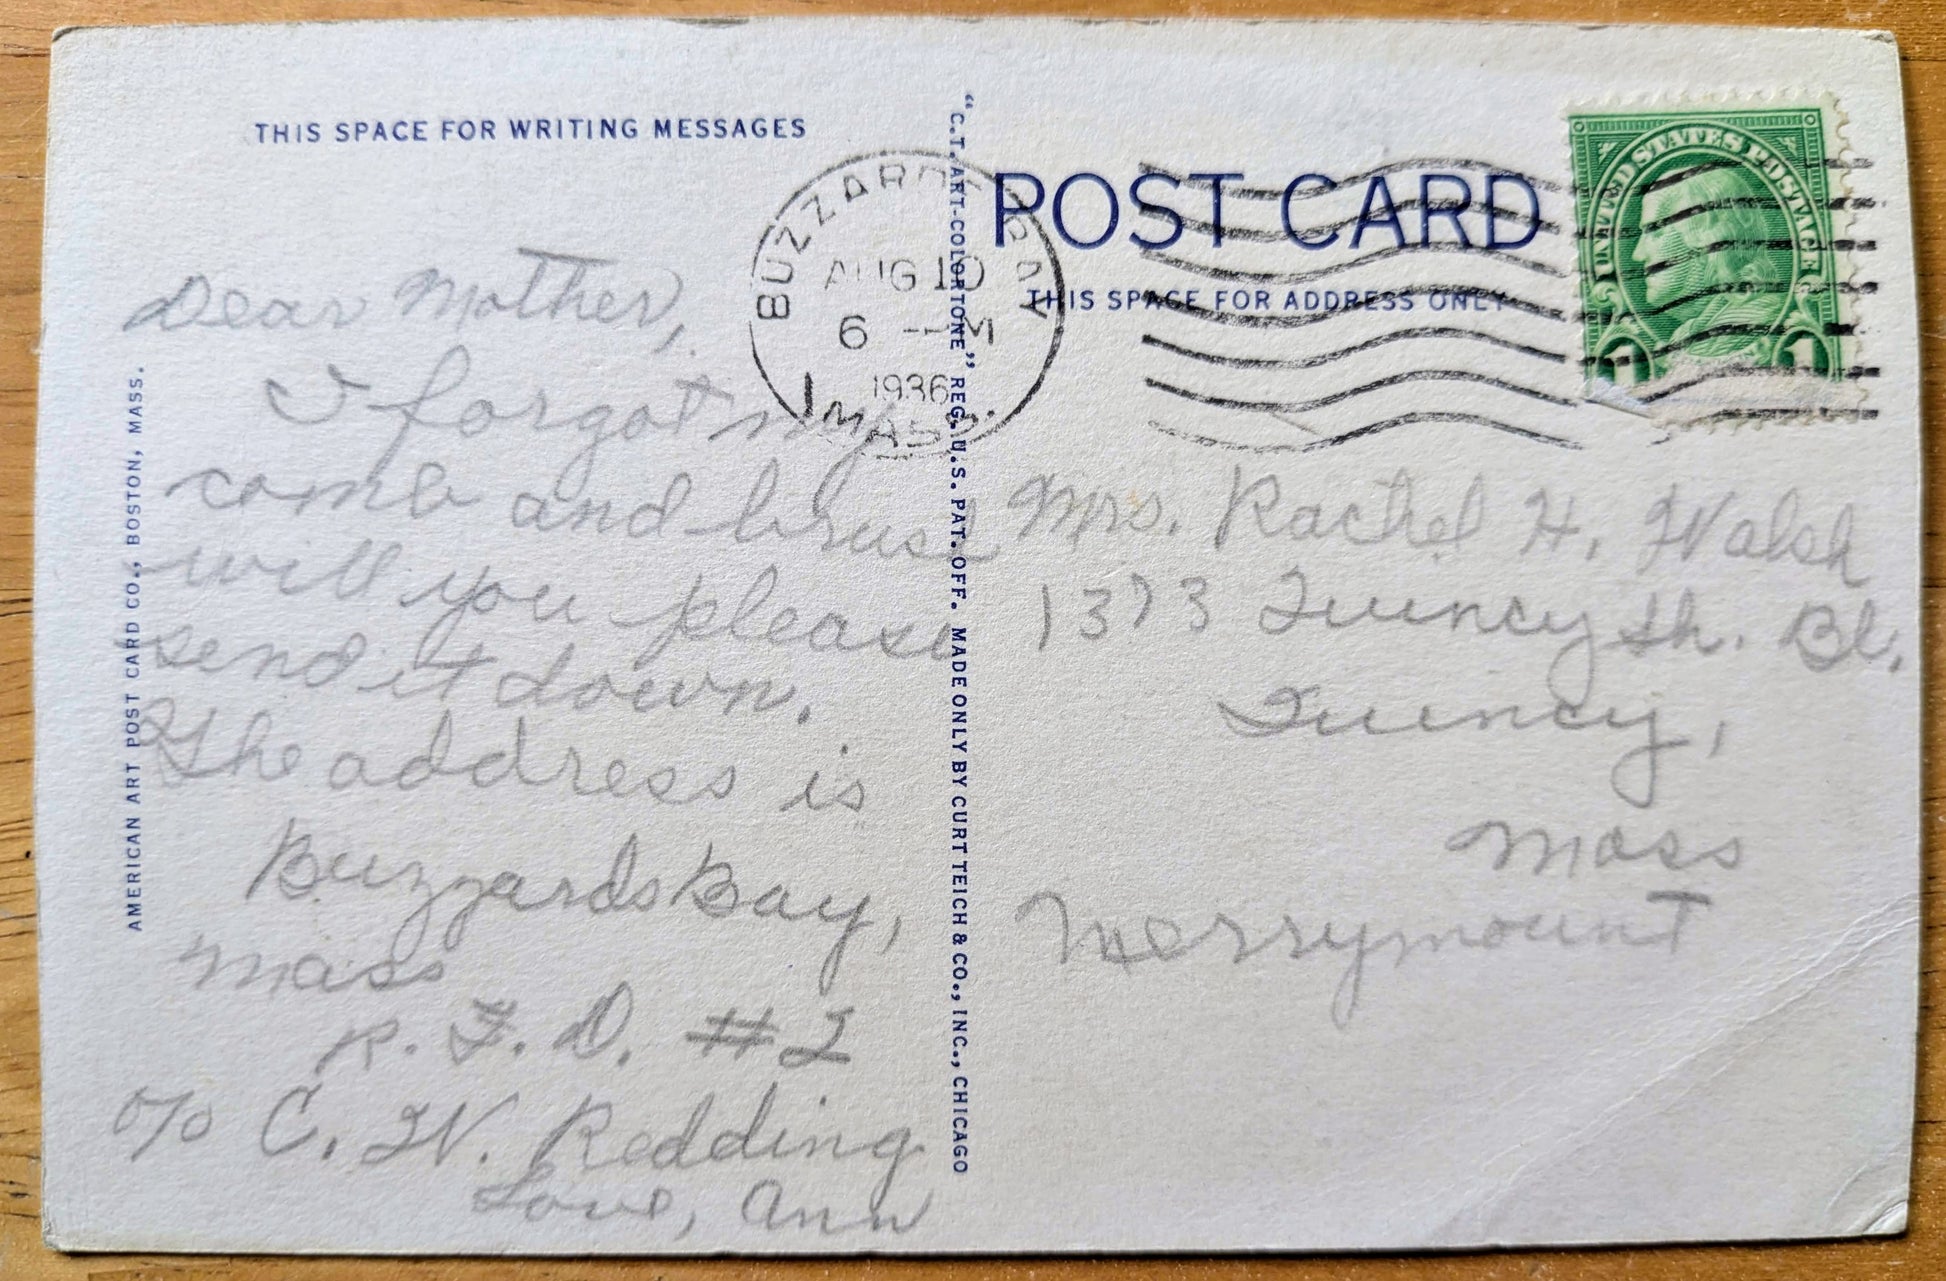 THIS SPACE FOR WRITING MESSAGES
Dear Mother,
I forgot my
comb and brush
will you please
send it down.
The address is
Buzzards Bay,
Mass
R. F. D. #2
c/o C. W. Redding
Love, Ann
AMERICAN ART POST CARD CO., BOSTON, MASS.
"C.T. ART-COLORTONE" REG. U.S. PAT. OFF. MADE ONLY BY CURT TEICH & CO., INC., CHICAGO
BUZZARDS BAY
AUG 10
6 M
1936
MASS.
POST CARD
THIS SPACE FOR ADDRESS ONLY
UNITED STATES POSTAGE
1 1
Mrs. Rachel H. Walsh
1373 Quincy Sh. Bl.
Quincy,
Mass
Merrymount